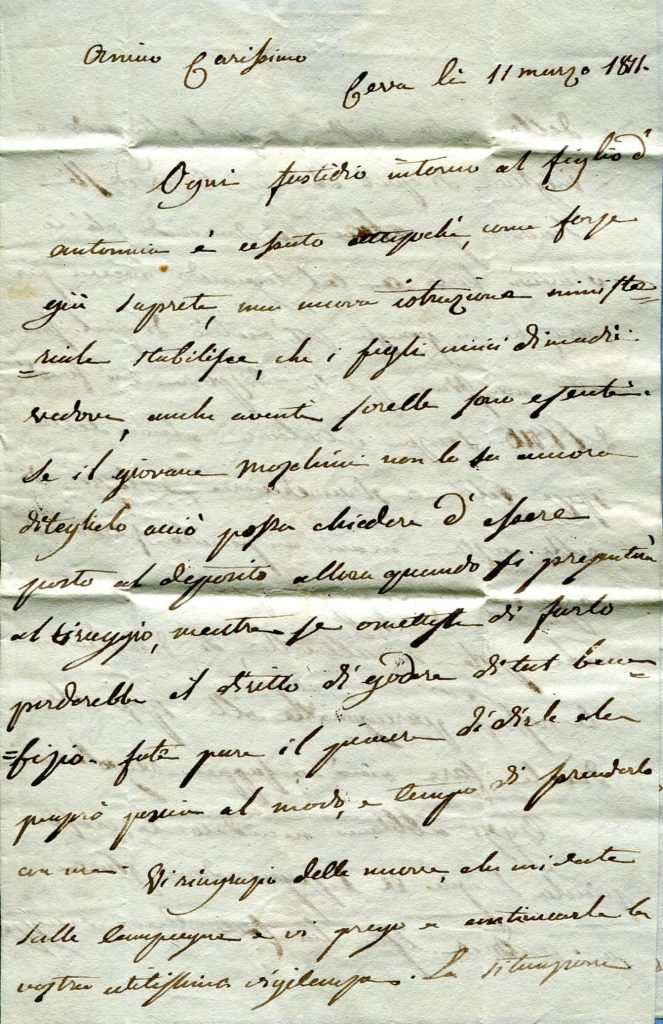 Amico Carissimo
Cerva li 11 marzo 1811.
Ogni fastidio intorno al figlio d'
antonnia è cessato attesochè, come forse
già saprete, una nuova istruzione ministe=
=riale stabilisce, che i figli unici di madri
vedove, anche aventi sorelle sono esenti.
Se il giovane Moschini non lo sa ancora
diteglielo acciò possa chiedere d'essere
posto al deposito allora quando si presenterà
al tiraggio, mentre se omettesse di farlo
perderebbe il diritto di godere di tal bene=
=fizio. fate pure il piacere di dirle che
penserò poscia al modo, e tempo di prenderlo
con me. Vi ringrazio delle nuove, che mi date
sulle campagne e vi prego a continuarle la
vostra utilissima vigilanza. La situazione